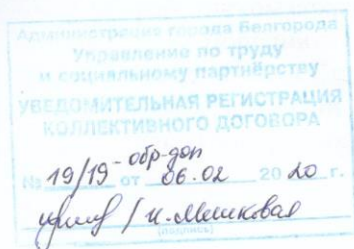 Администрация города Белгорода
Управление по труду
и социальному партнёрству
УВЕДОМИТЕЛЬНАЯ РЕГИСТРАЦИЯ
КОЛЛЕКТИВНОГО ДОГОВОРА
№ 19/19-обр-доп от 06.02 2020 г.
/ И. Мешкова
(подпись)